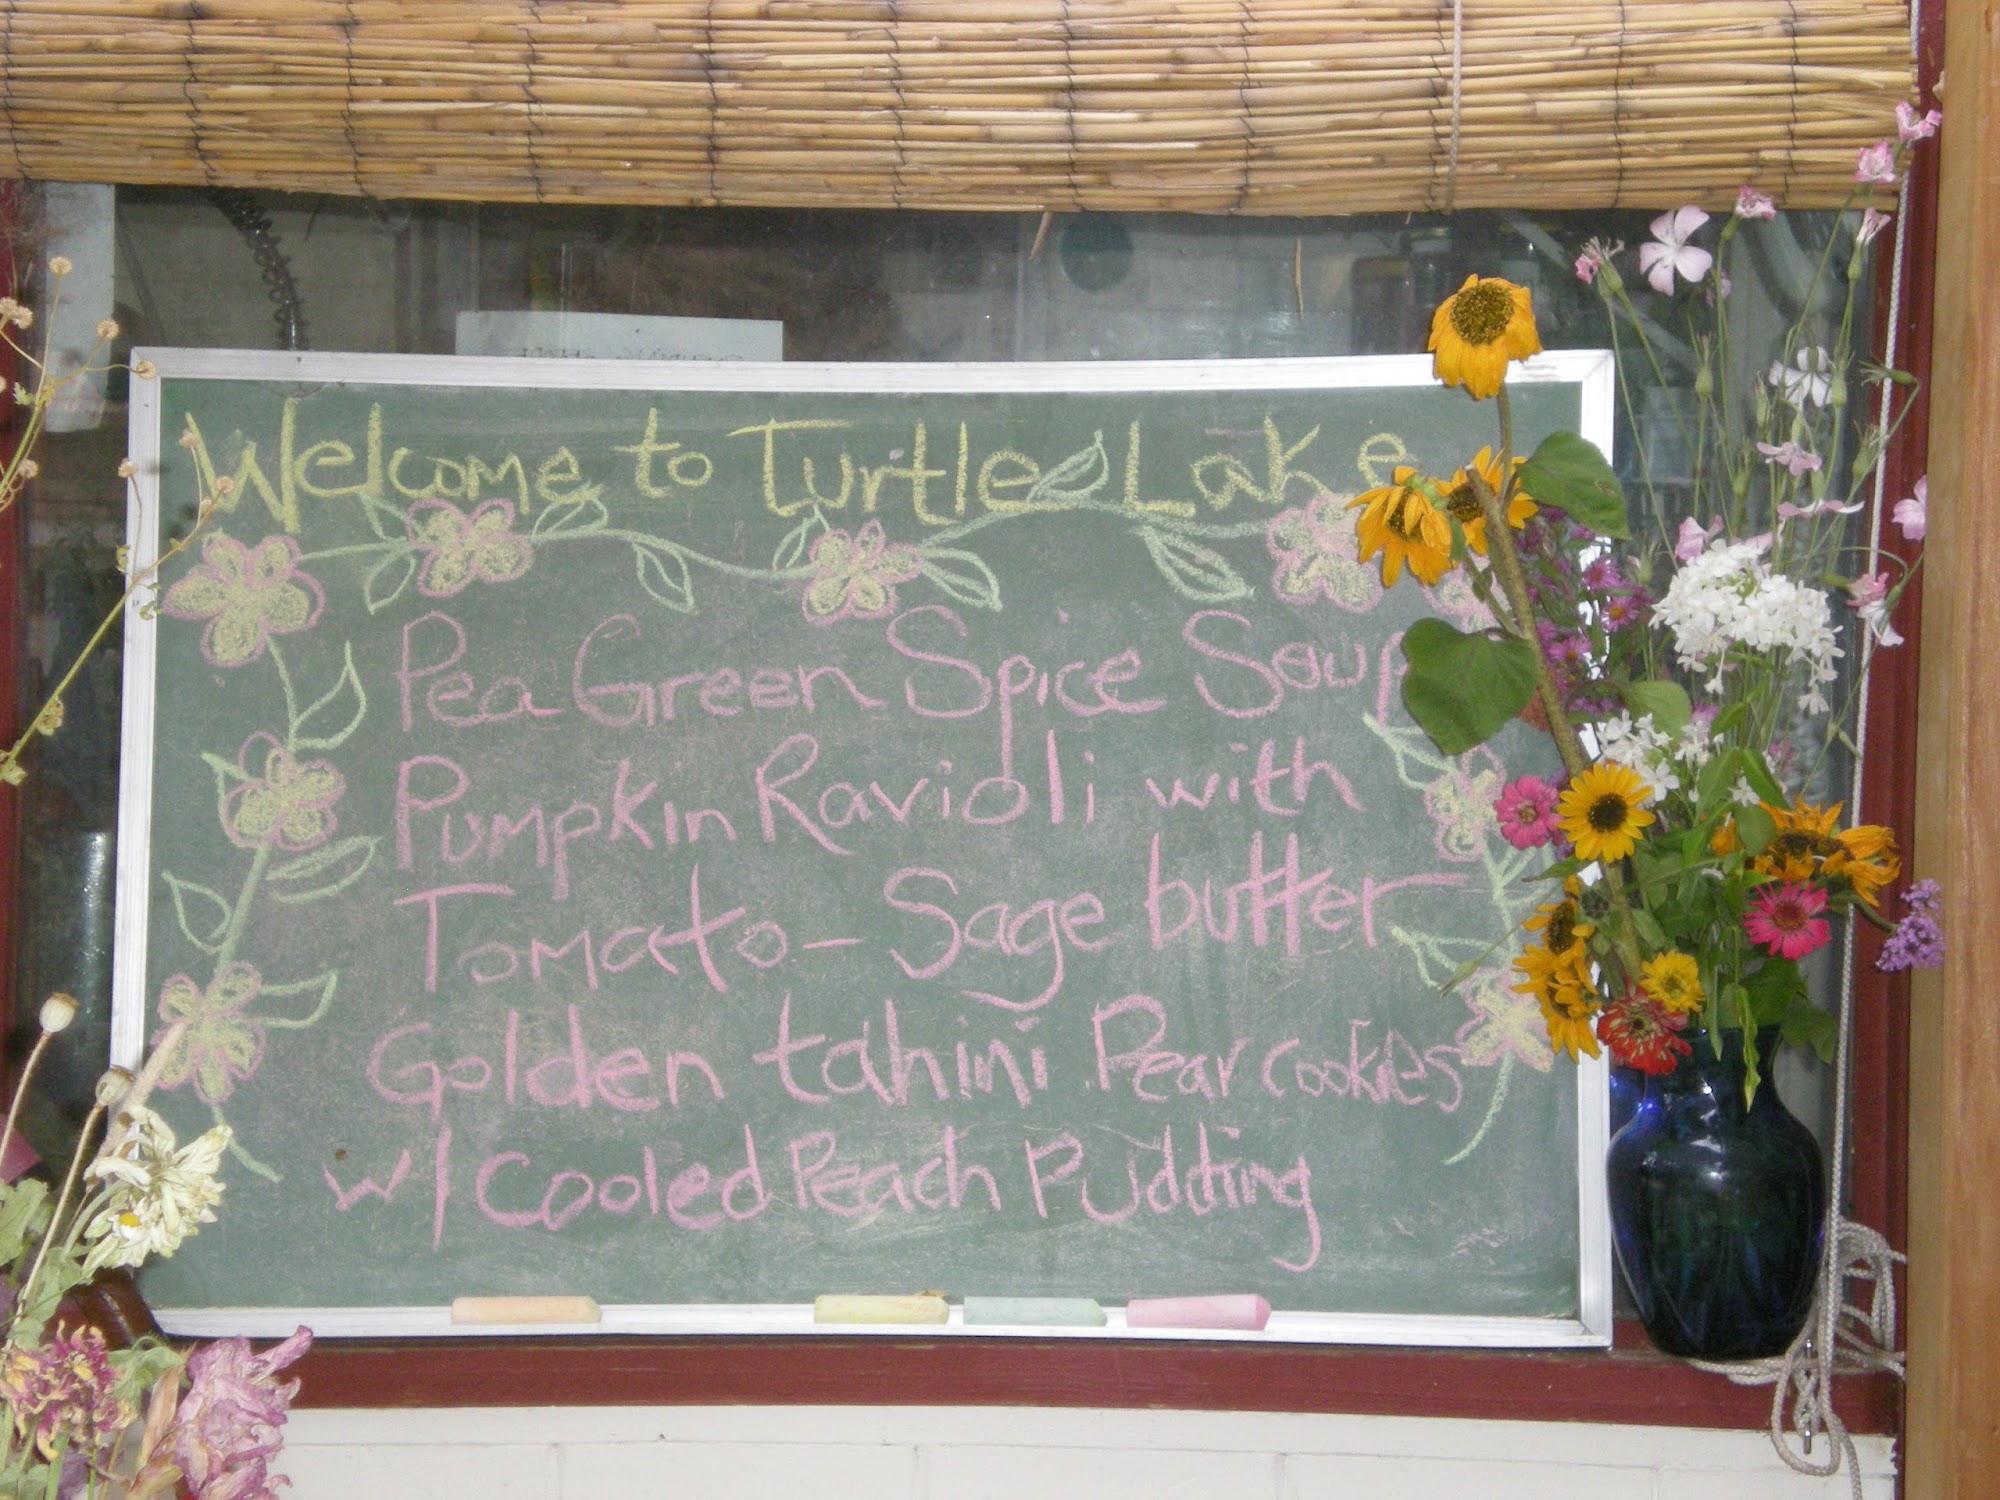 Welcome to Turtle Lake
Pea Green Spice Soup
Pumpkin Ravioli with
Tomato - Sage butter
Golden tahini Pear cookies
w/ Cooled Peach Pudding